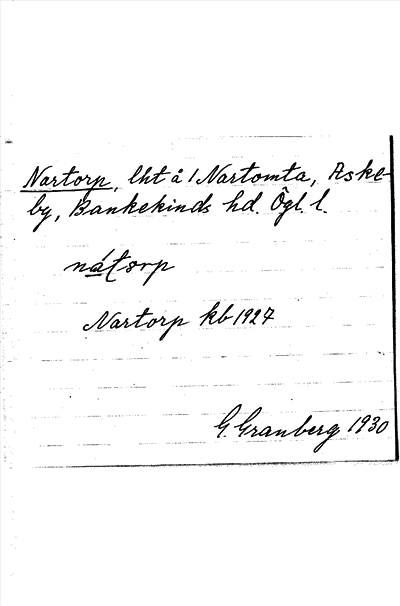 Nartorp, lht å 1 Nartomta, Aske-
by, Bankekinds hd. Ögl. l.
nátorp
Nartorp kb 1927
G. Granberg 1930